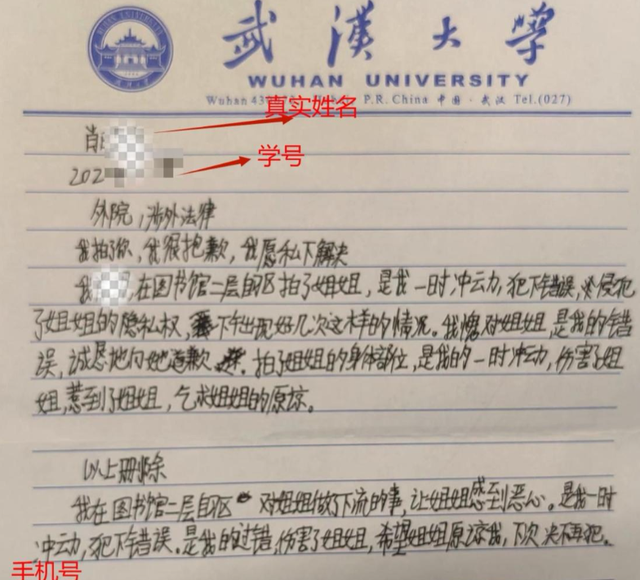 武漢大學
WUHAN UNIVERSITY
Wuhan 43 P.R. China 中国·武汉 Tel.(027)
真实姓名
肖
学号
202
外院,涉外法律
我拍了你,我很抱歉,我愿私下解决
我 ,在图书馆二层自习区拍了姐姐,是我一时冲动,犯下错误,侵犯
了姐姐的隐私权,下午出现好几次这样的情况。我愧对姐姐,是我的错
误,诚恳地向她道歉 拍了姐姐的身体部位,是我的一时冲动,伤害了姐
姐,惹到了姐姐,乞求姐姐的原谅。
以上删除
我在图书馆二层自习区 对姐姐做了下流的事,让姐姐感到恶心。是我一时
冲动,犯下错误。是我的过错,伤害了姐姐,希望姐姐原谅我,下次决不再犯。
手机号